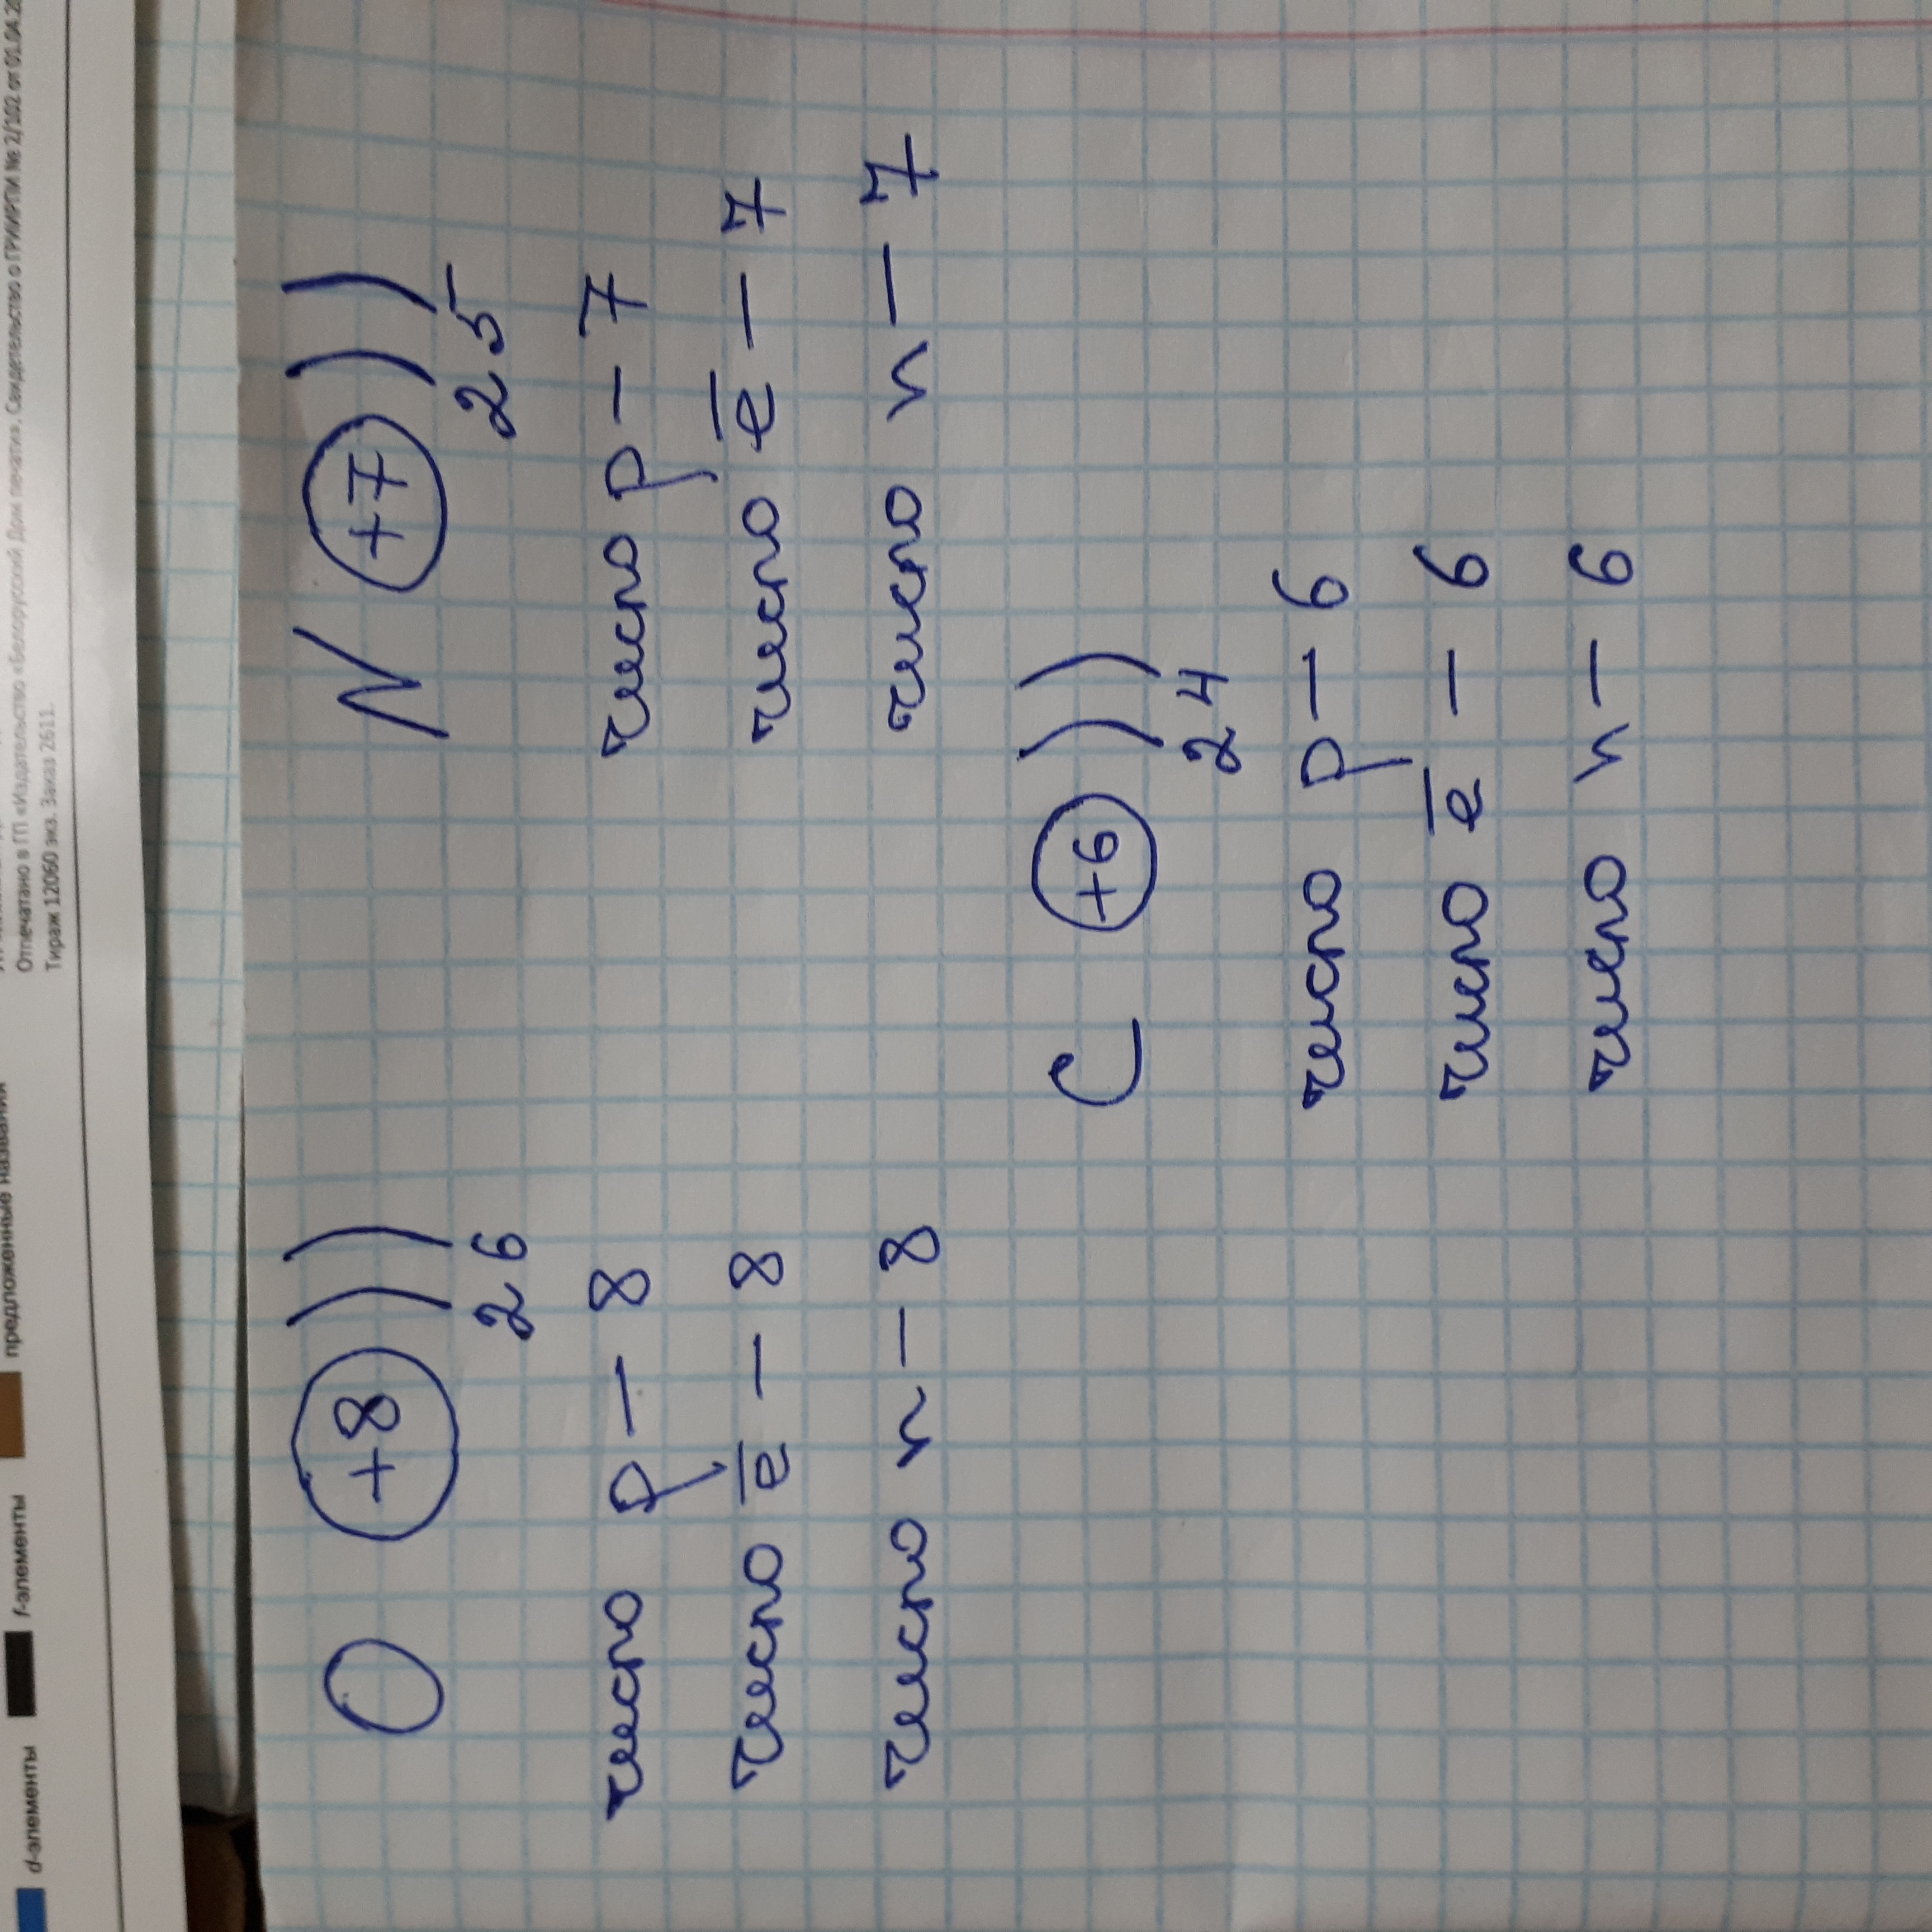 предложенные названия
d-элементы
f-элементы
Отпечатано в ГП «Издательство «Белорусский Дом печати». Свидетельство о ГРИИРПИ № 2/102 от 01.04.20
Тираж 12060 экз. Заказ 2611.
O +8 ))
2 6
число p – 8
число e̅ – 8
число n – 8
N +7 ))
2 5
число p – 7
число e̅ – 7
число n – 7
C +6 ))
2 4
число p – 6
число e̅ – 6
число n – 6